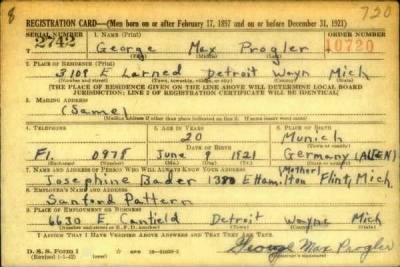 8
720
REGISTRATION CARD—(Men born on or after February 17, 1897 and on or before December 31, 1921)
SERIAL NUMBER 1. NAME (Print) ORDER NUMBER
2742 George Max Progler 10720
(First) (Middle) (Last)
2. PLACE OF RESIDENCE (Print)
3109 E Larned Detroit Wayn Mich
(Number and street) (Town, township, village, or city) (County) (State)
[THE PLACE OF RESIDENCE GIVEN ON THE LINE ABOVE WILL DETERMINE LOCAL BOARD
JURISDICTION; LINE 2 OF REGISTRATION CERTIFICATE WILL BE IDENTICAL]
3. MAILING ADDRESS
(Same)
[Mailing address if other than place indicated on line 2. If same insert word same]
4. TELEPHONE 5. AGE IN YEARS 6. PLACE OF BIRTH
20 Munich
DATE OF BIRTH (Town or county)
FI. 0975 June 9 1921 Germany (ALIEN)
(Exchange) (Number) (Mo.) (Day) (Yr.) (State or country)
7. NAME AND ADDRESS OF PERSON WHO WILL ALWAYS KNOW YOUR ADDRESS (Mother)
Josephine Bader E Hamilton Flint, Mich.
8. EMPLOYER'S NAME AND ADDRESS
Sanford Pattern
9. PLACE OF EMPLOYMENT OR BUSINESS
6630 E. Canfield Detroit Wayne Mich
(Number and street or R. F. D. number) (Town) (County) (State)
I AFFIRM THAT I HAVE VERIFIED ABOVE ANSWERS AND THAT THEY ARE TRUE.
D. S. S. Form 1 George Max Progler
(Revised 1-1-42) (over)